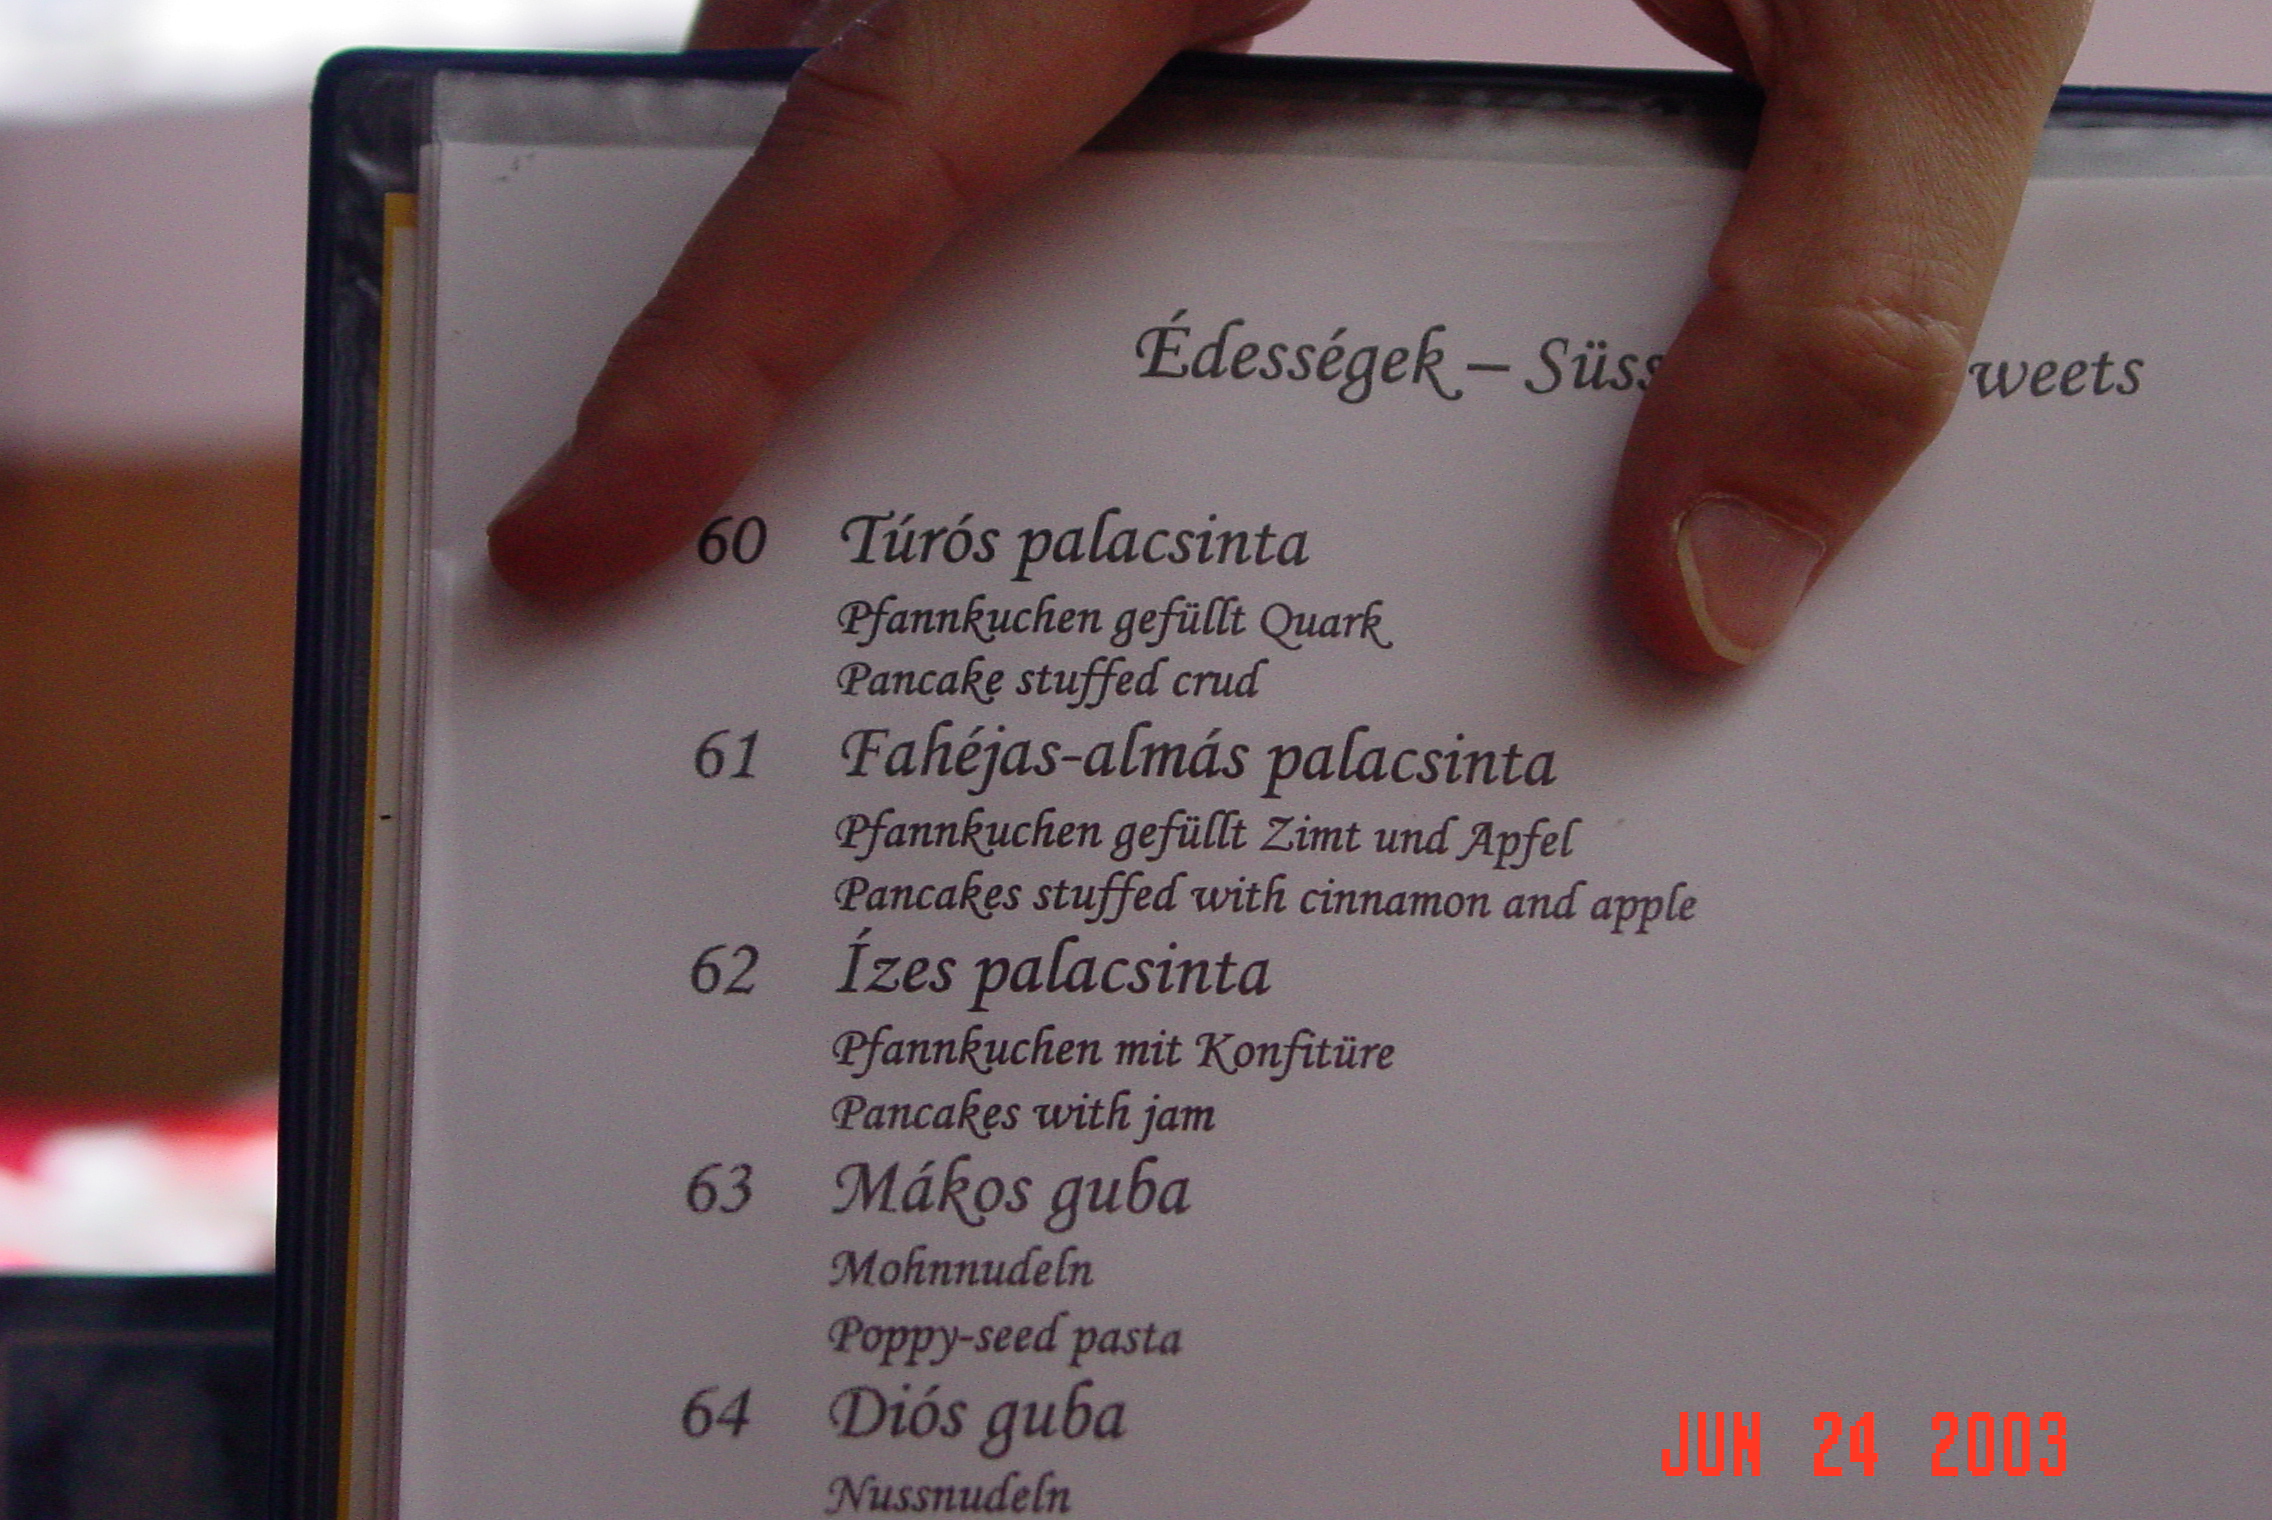 Édességek – Süss weets
60 Túrós palacsinta
Pfannkuchen gefüllt Quark
Pancake stuffed crud
61 Fahéjas-almás palacsinta
Pfannkuchen gefüllt Zimt und Apfel
Pancakes stuffed with cinnamon and apple
62 Ízes palacsinta
Pfannkuchen mit Konfitüre
Pancakes with jam
63 Mákos guba
Mohnnudeln
Poppy-seed pasta
64 Diós guba
Nussnudeln
JUN 24 2003